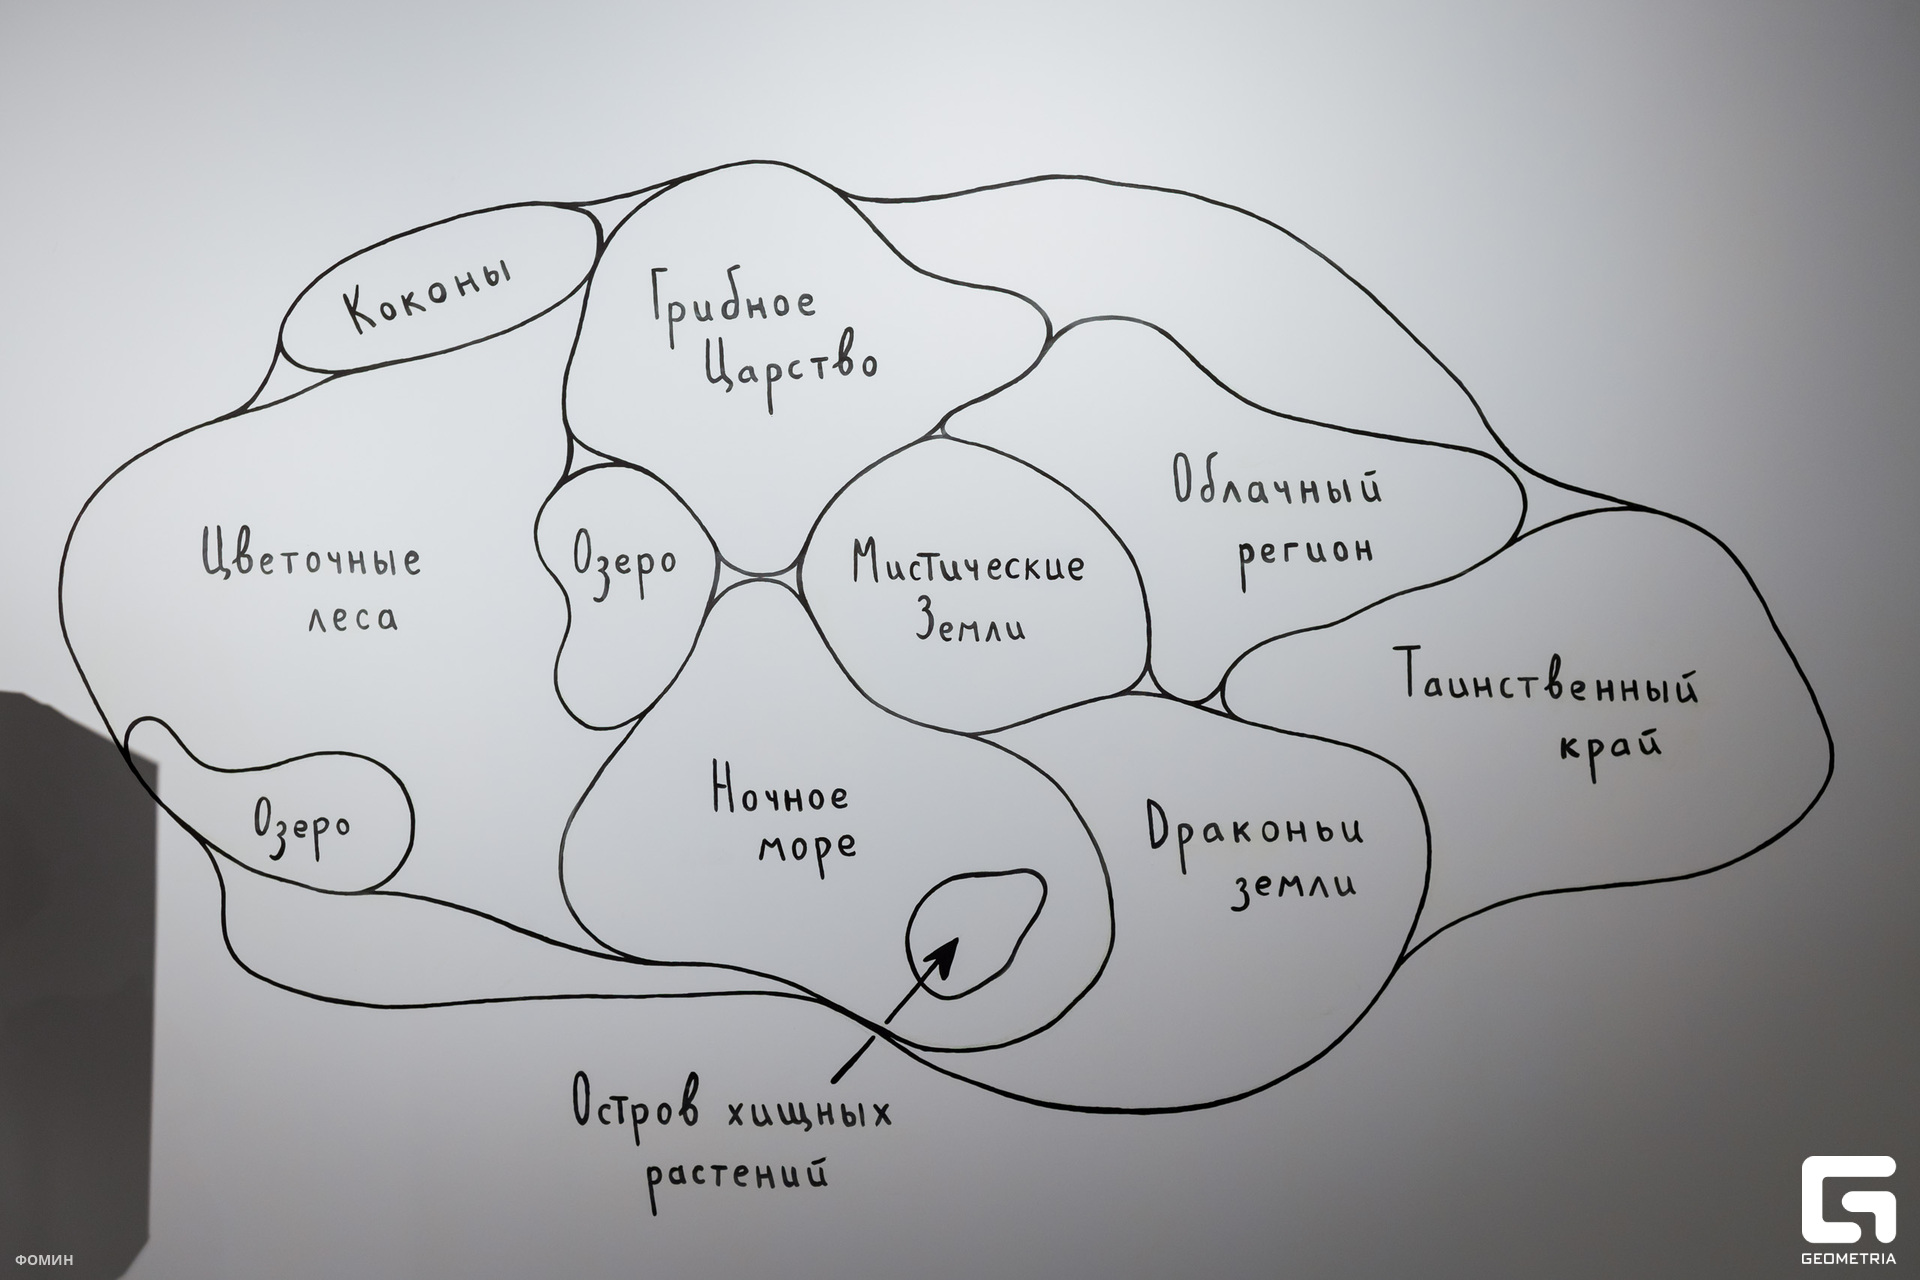 Коконы
Грибное
Царство
Облачный
регион
Цветочные
леса
Озеро
Мистические
Земли
Таинственный
край
Озеро
Ночное
море
Драконьи
земли
Остров хищных
растений
ФОМИН
GEOMETRIA